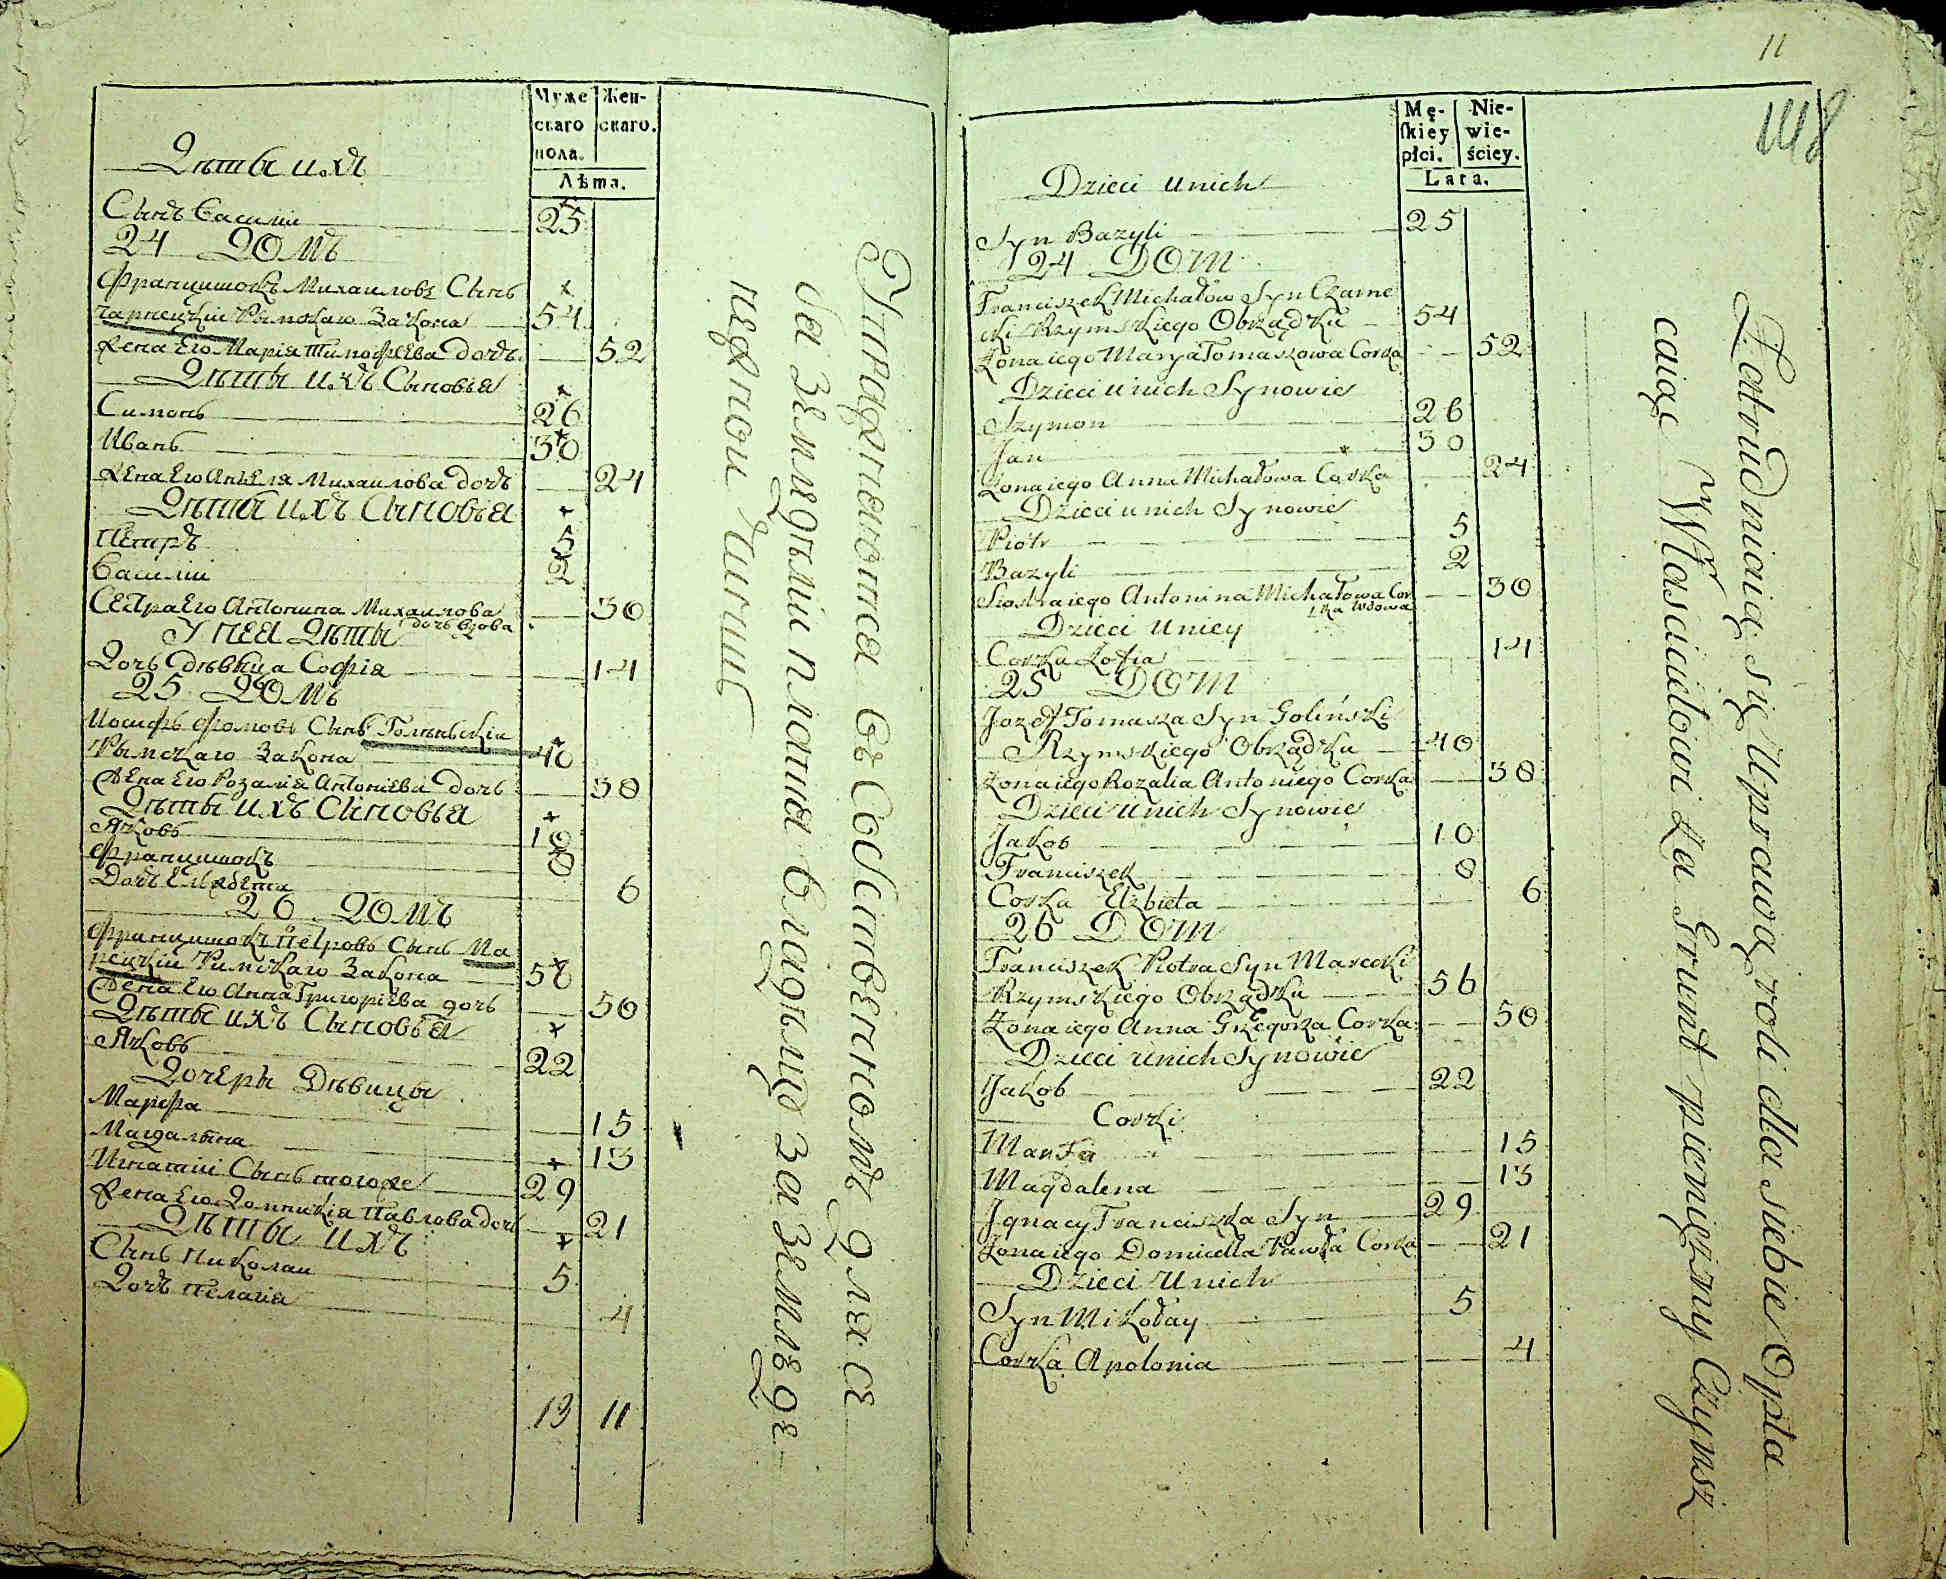 Муже
скаго
пола.
Жен-
скаго.
Лѣта.
Дѣты ихъ
Сынъ Василій 25
24 ДОМЪ
Францишокъ Михаиловъ Сынъ
Чарнецкій Рымскаго Закона 54
Жена Его Марія Тимофѣева дочь 52
Дѣты ихъ Сыновья
Симонъ 26
Иванъ 30
Жена Его Анѣеля Михаилова дочь 24
Дѣты ихъ Сыновья
Петръ 5
Василій 2
Сестра Его Антонина Михаилова 30
дочь вдова
У нея Дѣты
Дочь дѣвица Софія 14
25 ДОМЪ
Иосифъ Фомовъ Сынъ Голинскій
Рымскаго Закона 40
Жена Его Розалія Антоніева дочь 38
Дѣты ихъ Сыновья
Яковъ 10
Францишокъ 8
Дочь Елізбета 6
26 ДОМЪ
Францишокъ Петровъ Сынъ Ма
рецкій Римскаго Закона 56
Жена Его Анна Григоріева дочь 50
Дѣты ихъ Сыновья
Яковъ 22
Дочеры Дѣвицы
Марфа 15
Магдалына 13
Игнатій Сынъ тогоже 29
Жена Его Домицкія Павлова дочь 21
Дѣты ихъ
Сынъ Николай 5
Дочь Пелагія 4
13 11
Упражняются въ Собственномъ для се
бя Земледѣліи платя владѣльцу за землю де
нежной Чиншъ
11
148
Mę-
skiey
płci.
Nie-
wie-
ściey.
Lata.
Dzieci unich
Syn Bazyli 25
24 DOM
Franciszek Michałow Syn Czarne
cki Rzymskiego Obrządku 54
Zona iego Marya Tomaszowa Corka 52
Dzieci unich Synowie
Szymon 26
Jan 30
Zona iego Anna Michałowa Corka 24
Dzieci unich Synowie
Piotr 5
Bazyli 2
Siostra iego Antonina Michałowa Cor 30
ka Wdowa
Dzieci uniey
Corka Zofia 14
25 DOM
Jozef Tomasza Syn Goliński
Rzymskiego Obrządku 40
Zona iego Rozalia Antoniego Corka 38
Dzieci unich Synowie
Jakob 10
Franciszek 8
Corka Elzbieta 6
26 DOM
Franciszek Piotra Syn Marecki
Rzymskiego Obrządku 56
Zona iego Anna Grzegorza Corka 50
Dzieci unich Synowie
Jakob 22
Corki
Marfa 15
Magdalena 13
Jgnacy Franciszka Syn 29
Zona iego Domicella Pawła Corka 21
Dzieci Unich
Syn Mikołay 5
Corka Apolonia 4
Zatrudniaią się Uprawą roli dla siebie Opła
caiąc Włascicielowi za Grunt pieniężny Czynsz